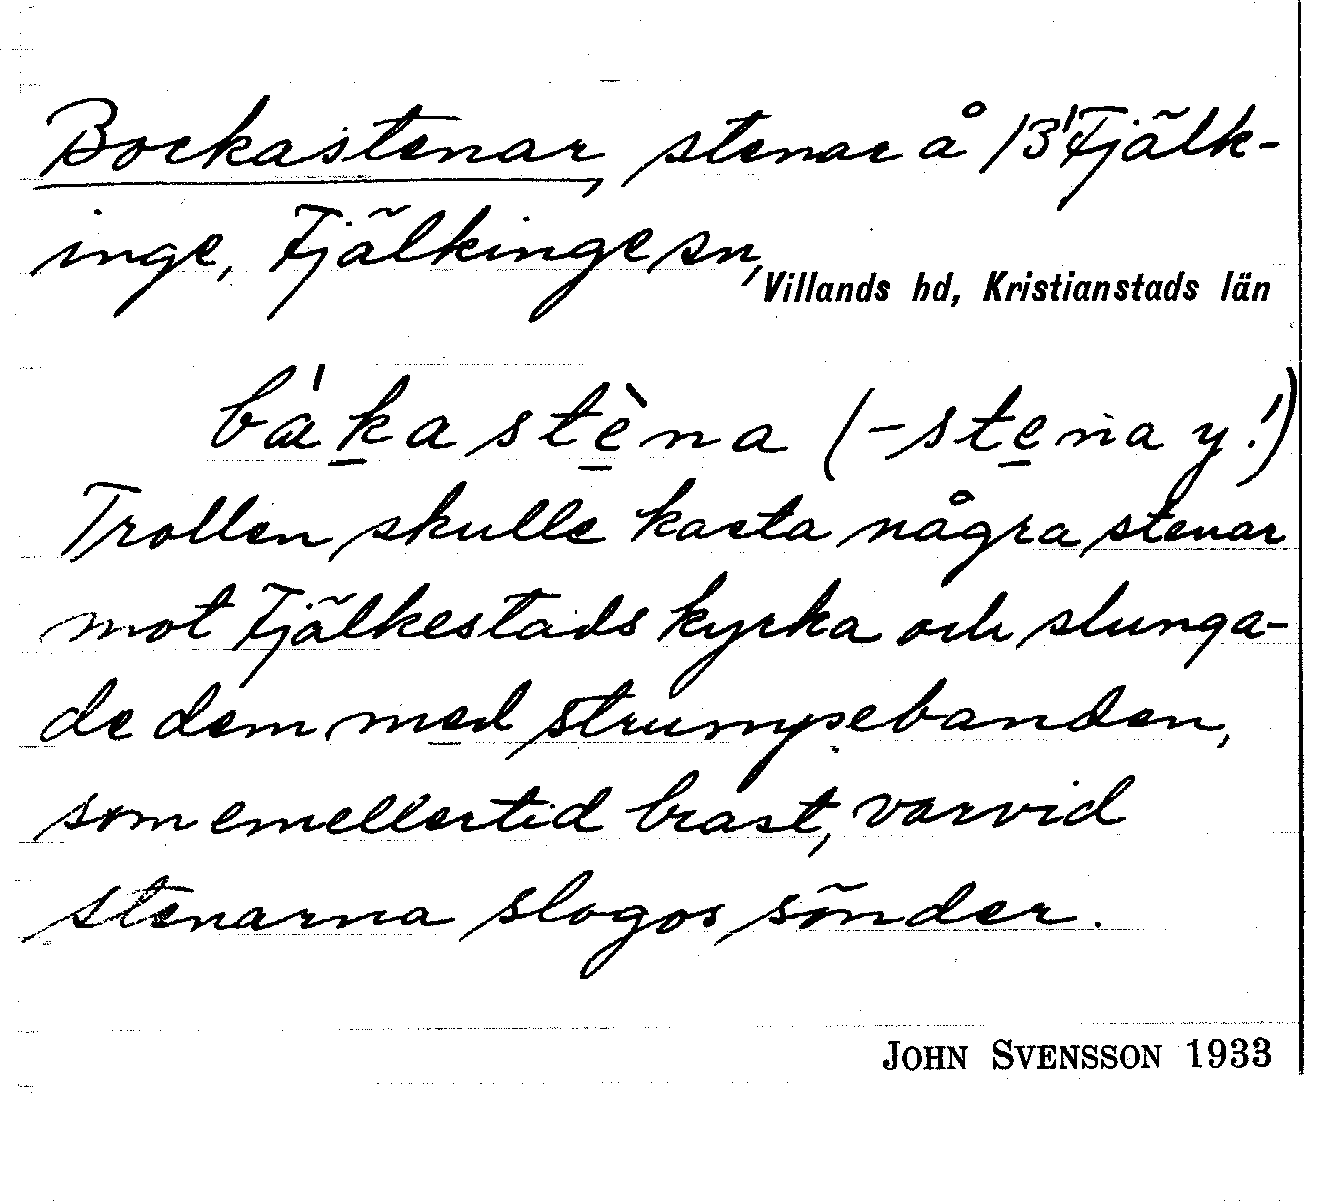 Bockastenar, stenar å 13¹ Fjälk-
inge, Fjälkinge sn,
Villands hd, Kristianstads län
bàka stèna (-stena y.!)
Trollen skulle kasta några stenar
mot Fjälkestads kyrka och slunga-
de dem med strumpebanden,
som emellertid brast, varvid
stenarna slogos sönder.
JOHN SVENSSON 1933